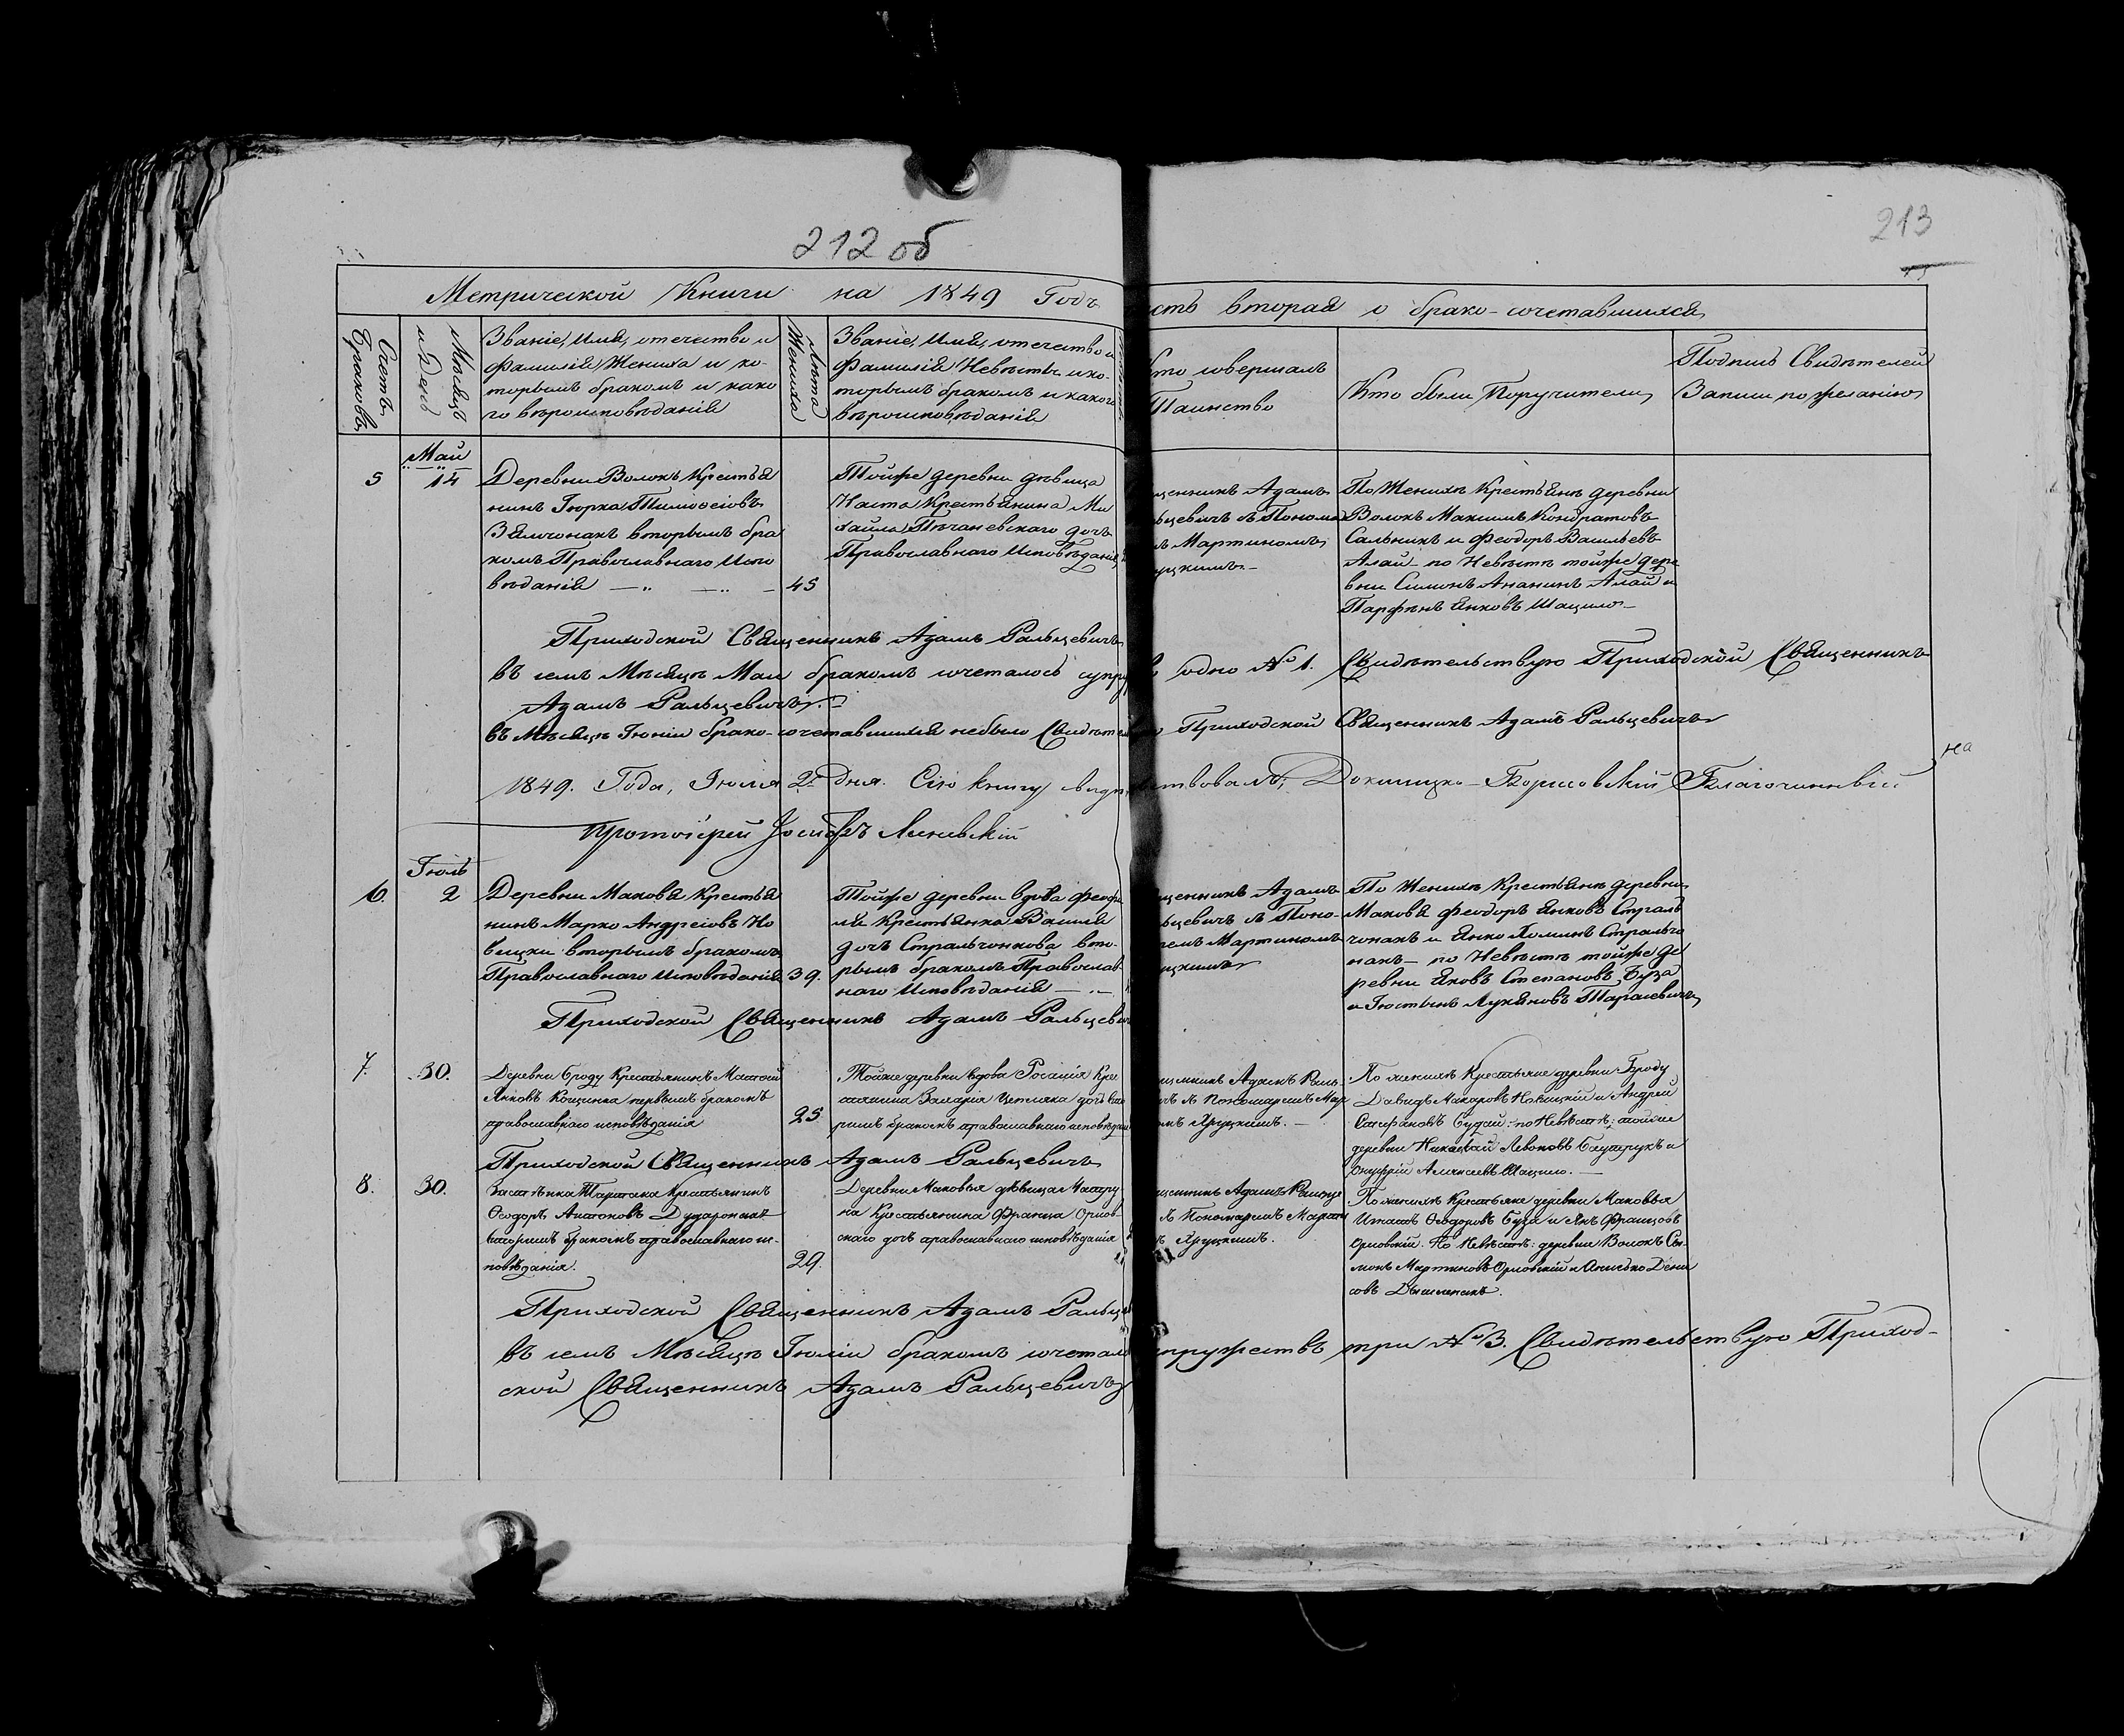 212 об
213
Метрической Книги на 1849 Годъ
сть вторая о брако-сочетавшихся
Счетъ Браковъ
Месяцъ и День
Званіе, Имя, отечество и
фамилія Жениха и ко-
торымъ бракомъ и како
го вероисповѣданія
Лѣта Жениха
Званіе, Имя, отечество и
Фамилія Невѣсты и ко-
торымъ бракомъ и какого
вѣроисповѣданія
то совершалъ
Таинство
Кто были Поручители
Подпись Свидѣтелей
Записи по желанію
Май
5
14
Деревни Волокъ Крестья
нинъ Гюрка Тимофеіовъ
вторымъ бра
комъ Православнаго Испо
вѣданія
45
Тойже деревни дѣвица
Наста Крестьянина Ми
хайла дочь
Православнаго Исповѣданія
щенникъ Адамъ
ьцевичъ съ Понома
ъ Мартиномъ
уцкимъ
По Женихѣ Крестьяне деревни
Волокъ Максимъ Кондратовъ
Сальникъ и Феодоръ Васильевъ
Алай по Невѣстѣ тойже дере
вни Симонъ Ананинъ Алай и
Парфенъ Янковъ Шацило
Приходской Священникъ Адамъ Ральцевичъ
въ семъ Мѣсяцѣ Маи бракомъ сочеталось супру
одно № 1. Свидѣтельствую Приходской Священникъ
Адамъ Ральцевичъ
въ Мѣсяцѣ Іюніи брако-сочетавшихся небыло Свидѣте
Приходской Священникъ Адамъ Ральцевичъ
1849. Года, Іюля 2 дня. Сію книгу свидѣ
тельствовалъ, Докшицко-Борисовскій Благочинный
на
протоіерей Іосифъ
Іюль
6.
2
Деревни Маковя Крестья
нинъ Марко Андреіовъ Но
вицки вторымъ бракомъ
Православнаго Исповѣданія
39.
Тойже деревни вдова Феофи
ля Крестьянка Василя
дочь Стральчонкова вто-
рымъ бракомъ Православ
наго Исповѣданія
щенникъ Адамъ
ьцевичъ съ Поно-
емъ Мартиномъ
уцкимъ
По Женихѣ Крестьяне деревни
Маковя Феодоръ Янковъ Страль
чонакъ и Янко Хоминъ Стральчо
накъ по Невѣстѣ тойже де
ревни Яковъ Степановъ Буза
и Гюстынъ Лукяновъ Тарасевичъ
Приходской Священникъ Адамъ Ральцеви
7.
30.
Деревни Броду Крестьянинъ Матвей
Янковъ первымъ бракомъ
православнаго исповѣданія
25
Тойже деревни вдова Росалія Кре
стянина дочь вто
рымъ бракомъ православнаго исповѣдані
щенникъ Адамъ Раль
чъ съ Пономаремъ Мар
омъ Хруцкимъ.
По женихѣ Крестьяне деревни Броду
Давидъ Макаровъ Новицкій и Андрей
Стефановъ Будай: по Невѣстѣ: тойже
деревни Николай Левоновъ и
Онуфрій Алексеевъ Шацило.
Приходской Священникъ Адамъ Ральцевичъ
8.
30.
Застѣнка Крестьянинъ
Ѳеодоръ Антоновъ
вторымъ бракомъ православнаго ис-
повѣданія.
29.
Деревни Маковья дѣвица
на Крестьянина Франца Орлов-
скаго дочь православнаго исповѣданія
щенникъ Адамъ Ральце
съ Пономаремъ Марти
ъ Хруцкимъ.
По женихѣ Крестьяне деревни Маковья
Игнатъ Ѳеодоровъ Буза и Янъ Францовъ
Орловскій. По Невѣстѣ: деревни Волокъ Си-
монъ Мартиновъ Орловскій и Денис
совъ
Приходской Священникъ Адамъ Ральце
въ семъ Мѣсяцѣ Іюліи бракомъ сочетало
упружествъ три № 3. Свидѣтельствую Приход-
ской Священникъ Адамъ Ральцевичъ